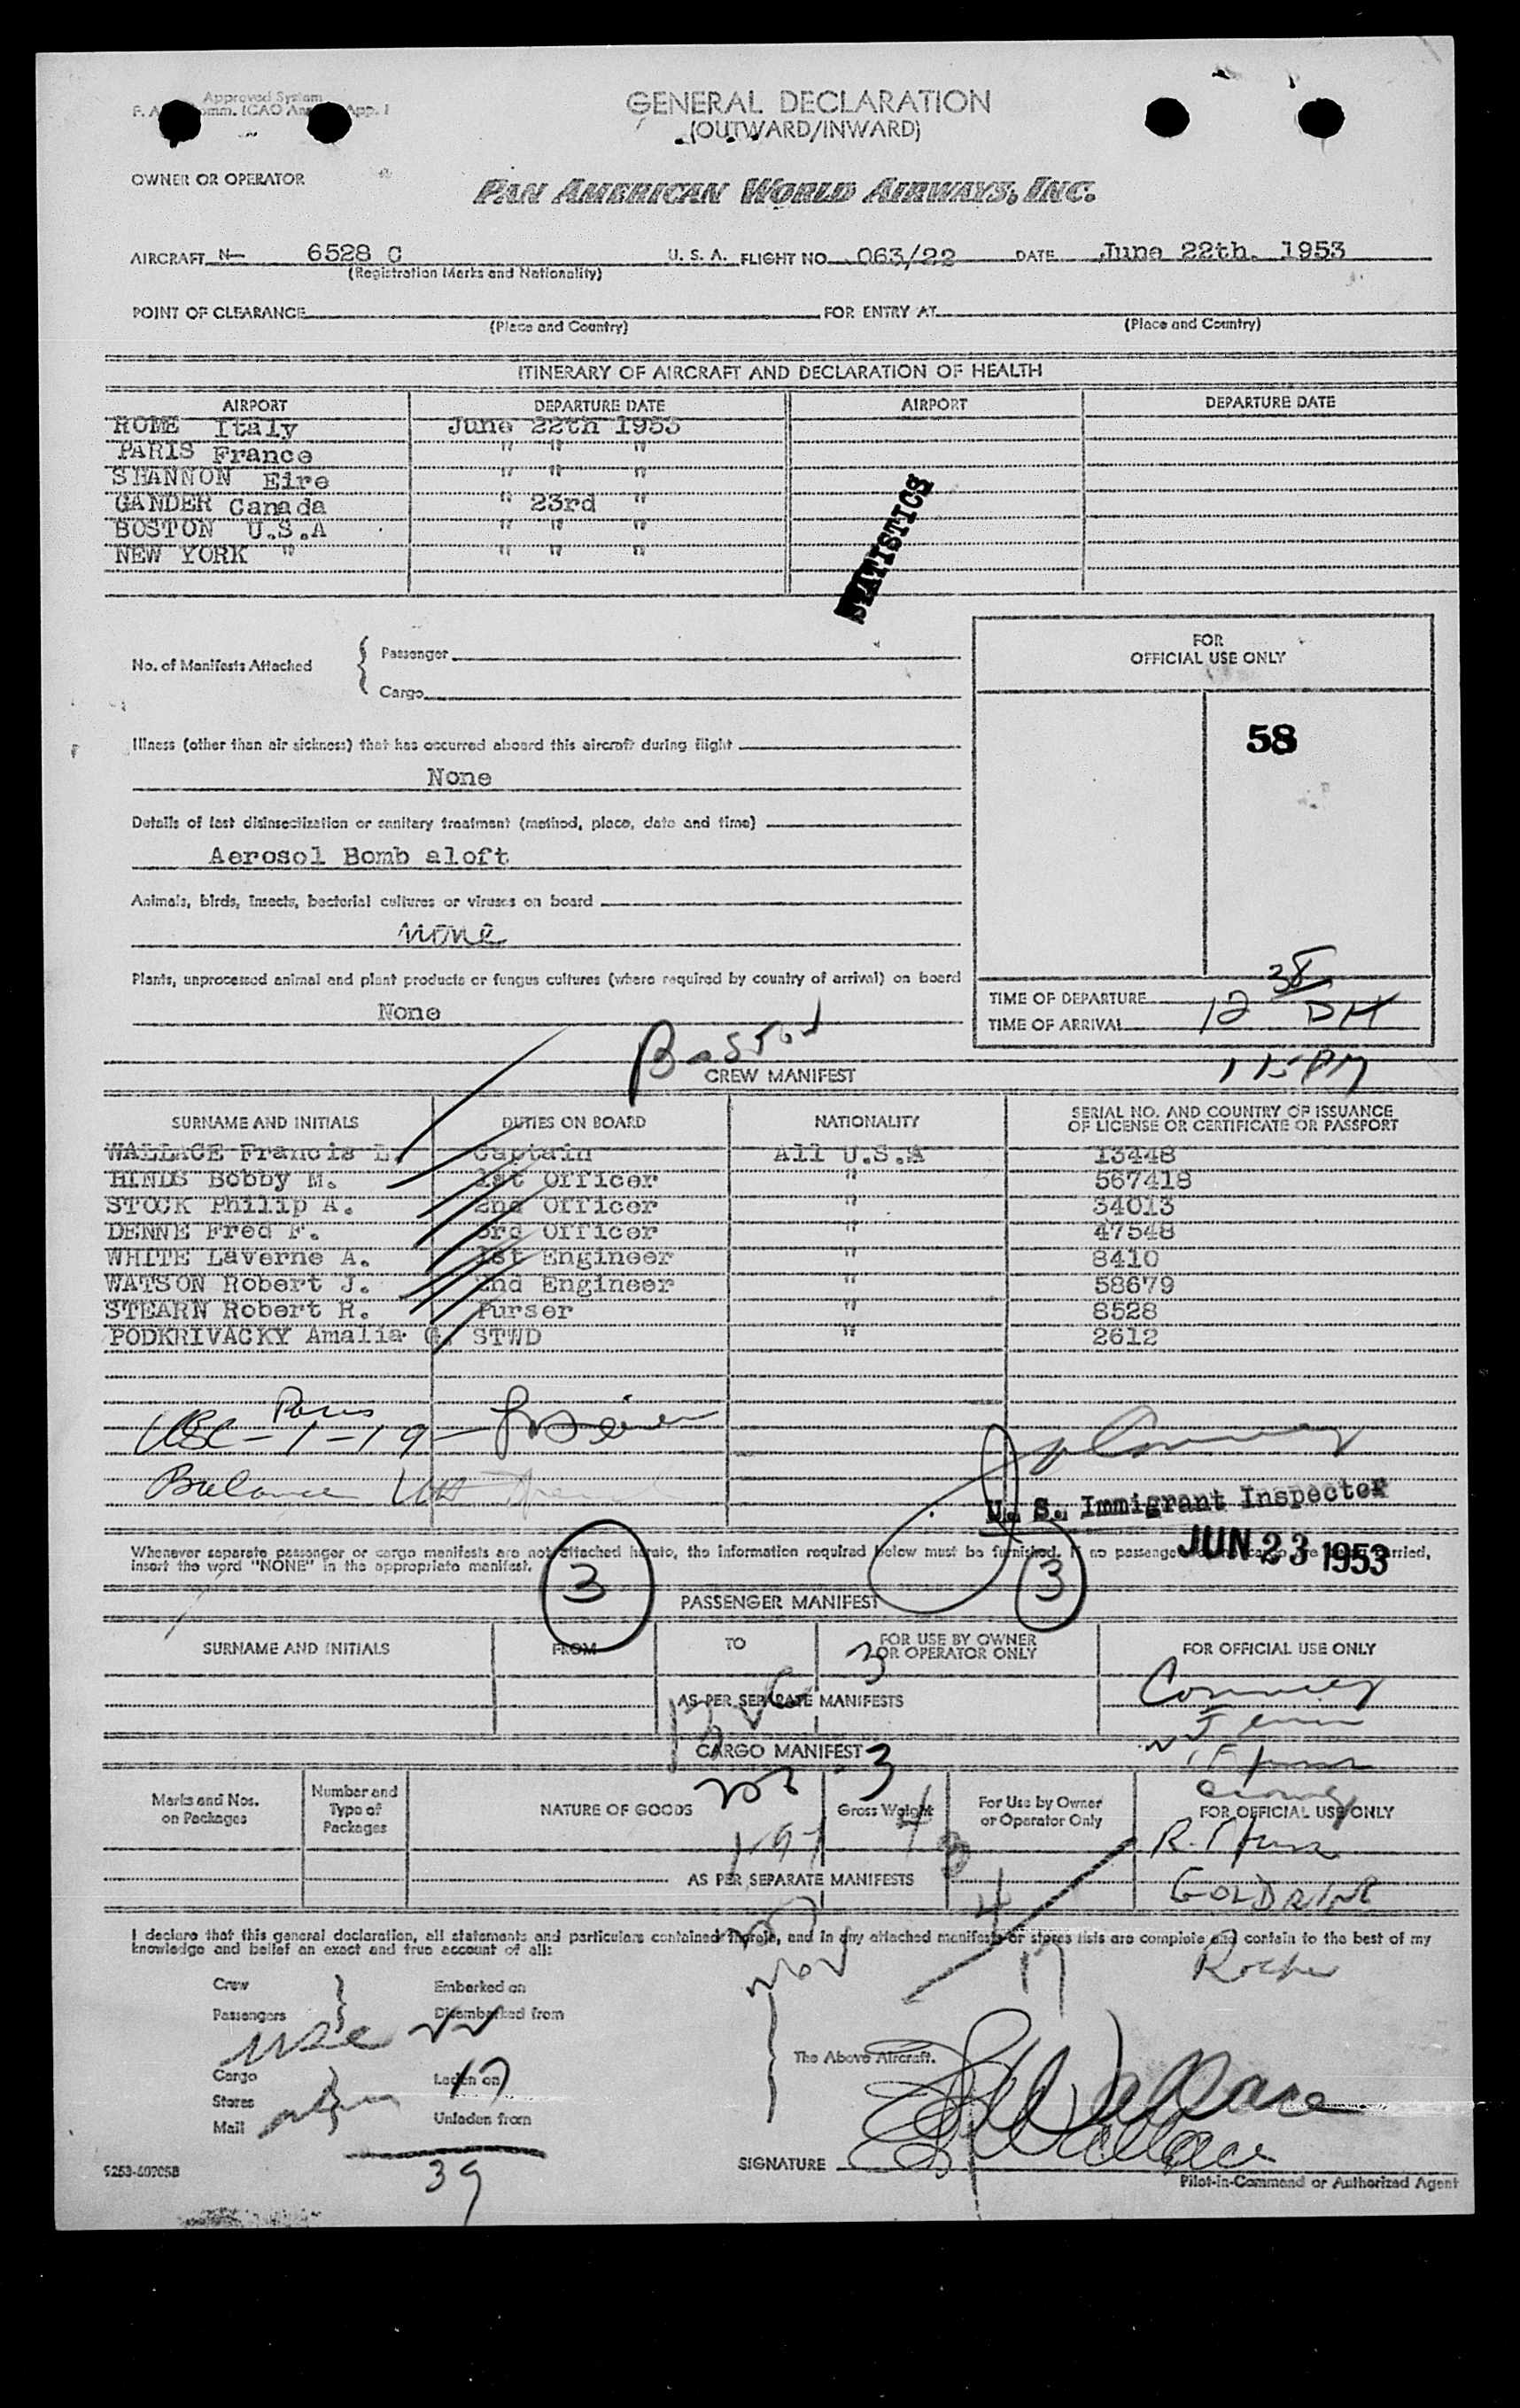 Approved System
GENERAL DECLARATION
(OUTWARD/INWARD)
OWNER OR OPERATOR
PAN AMERICAN WORLD AIRWAYS, INC.
AIRCRAFT N- 6528 C U. S. A. FLIGHT NO. 063/22 DATE June 22th. 1953
(Registration Marks and Nationality)
POINT OF CLEARANCE FOR ENTRY AT
(Place and Country) (Place and Country)
ITINERARY OF AIRCRAFT AND DECLARATION OF HEALTH
AIRPORT DEPARTURE DATE AIRPORT DEPARTURE DATE
ROME Italy June 22th 1953
PARIS France " " "
SHANNON Eire " " "
GANDER Canada " 23rd "
BOSTON U.S.A " " "
NEW YORK " " " "
STATISTICS
No. of Manifests Attached { Passenger
Cargo
FOR
OFFICIAL USE ONLY
58
Illness (other than air sickness) that has occurred aboard this aircraft during flight
None
Details of last disinsectization or sanitary treatment (method, place, date and time)
Aerosol Bomb aloft
Animals, birds, insects, bacterial cultures or viruses on board
none
Plants, unprocessed animal and plant products or fungus cultures (where required by country of arrival) on board
None
TIME OF DEPARTURE
TIME OF ARRIVAL 12
115 PM
CREW MANIFEST
SURNAME AND INITIALS DUTIES ON BOARD NATIONALITY SERIAL NO. AND COUNTRY OF ISSUANCE
OF LICENSE OR CERTIFICATE OR PASSPORT
WALLACE Francis L. Captain All U.S.A 13448
HINDS Bobby M. 1st Officer " 567418
STOCK Philip A. 2nd Officer " 34013
DENNE Fred F. 3rd Officer " 47548
WHITE Laverne A. 1st Engineer " 8410
WATSON Robert J. 2nd Engineer " 58679
STEARN Robert R. Purser " 8528
PODKRIVACKY Amalia G. STWD " 2612
Balance
U. S. Immigrant Inspector
JUN 23 1953
Whenever separate passenger or cargo manifests are not attached hereto, the information required below must be furnished. If no passengers or cargo are carried,
insert the word "NONE" in the appropriate manifest.
3 3
PASSENGER MANIFEST
SURNAME AND INITIALS FROM TO FOR USE BY OWNER
OR OPERATOR ONLY FOR OFFICIAL USE ONLY
3
AS PER SEPARATE MANIFESTS
CARGO MANIFEST
3
Marks and Nos.
on Packages Number and
Type of
Packages NATURE OF GOODS Gross Weight For Use by Owner
or Operator Only FOR OFFICIAL USE ONLY
AS PER SEPARATE MANIFESTS
4
17
I declare that this general declaration, all statements and particulars contained therein, and in any attached manifests or stores lists are complete and contain to the best of my
knowledge and belief an exact and true account of all:
Crew Embarked on
Passengers Disembarked from
The Above Aircraft.
Cargo Laden on 17
Stores
Mail Unladen from
39
SIGNATURE Wallace
Pilot-in-Command or Authorized Agent